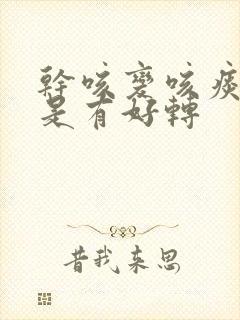 幹咳變咳痰
是有好轉
昔我来思